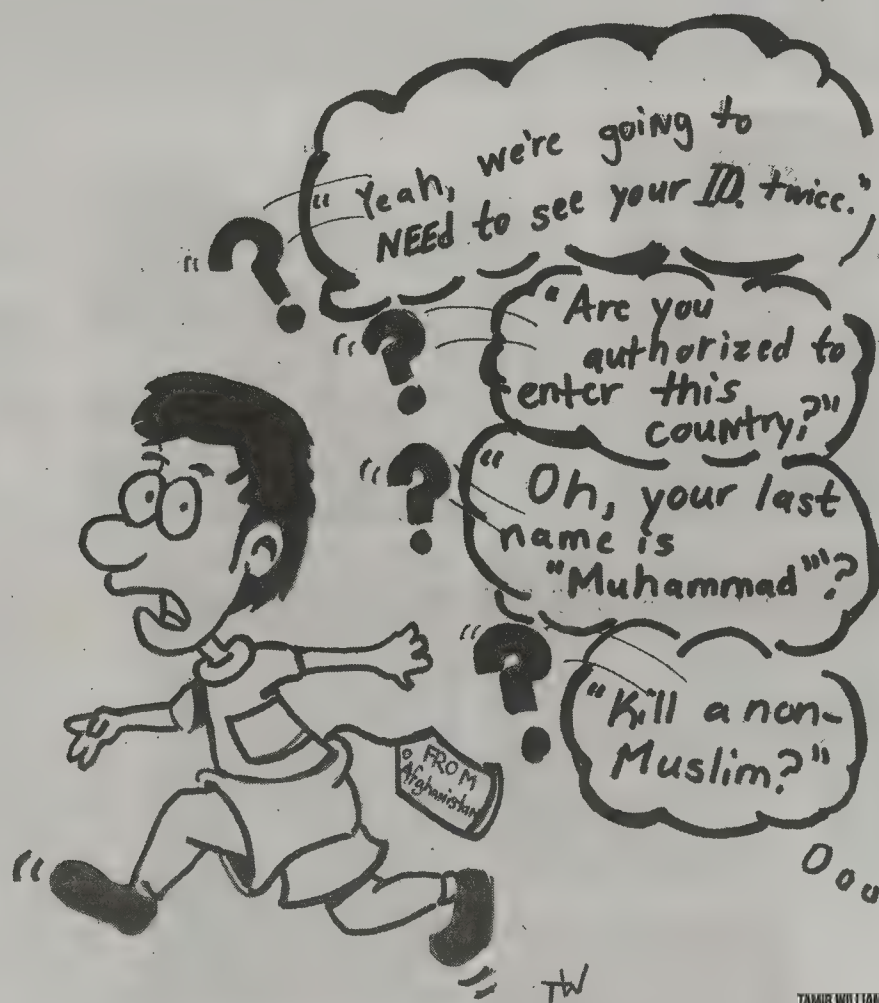 "Yeah, we're going to
NEEd to see your ID. twice."
"Are you
authorized to
enter this
country?"
"Oh, your last
name is
"Muhammad""?
"Kill a non-
Muslim?"
FROM
Afghanistan
TW
TAMIR WILLIAM